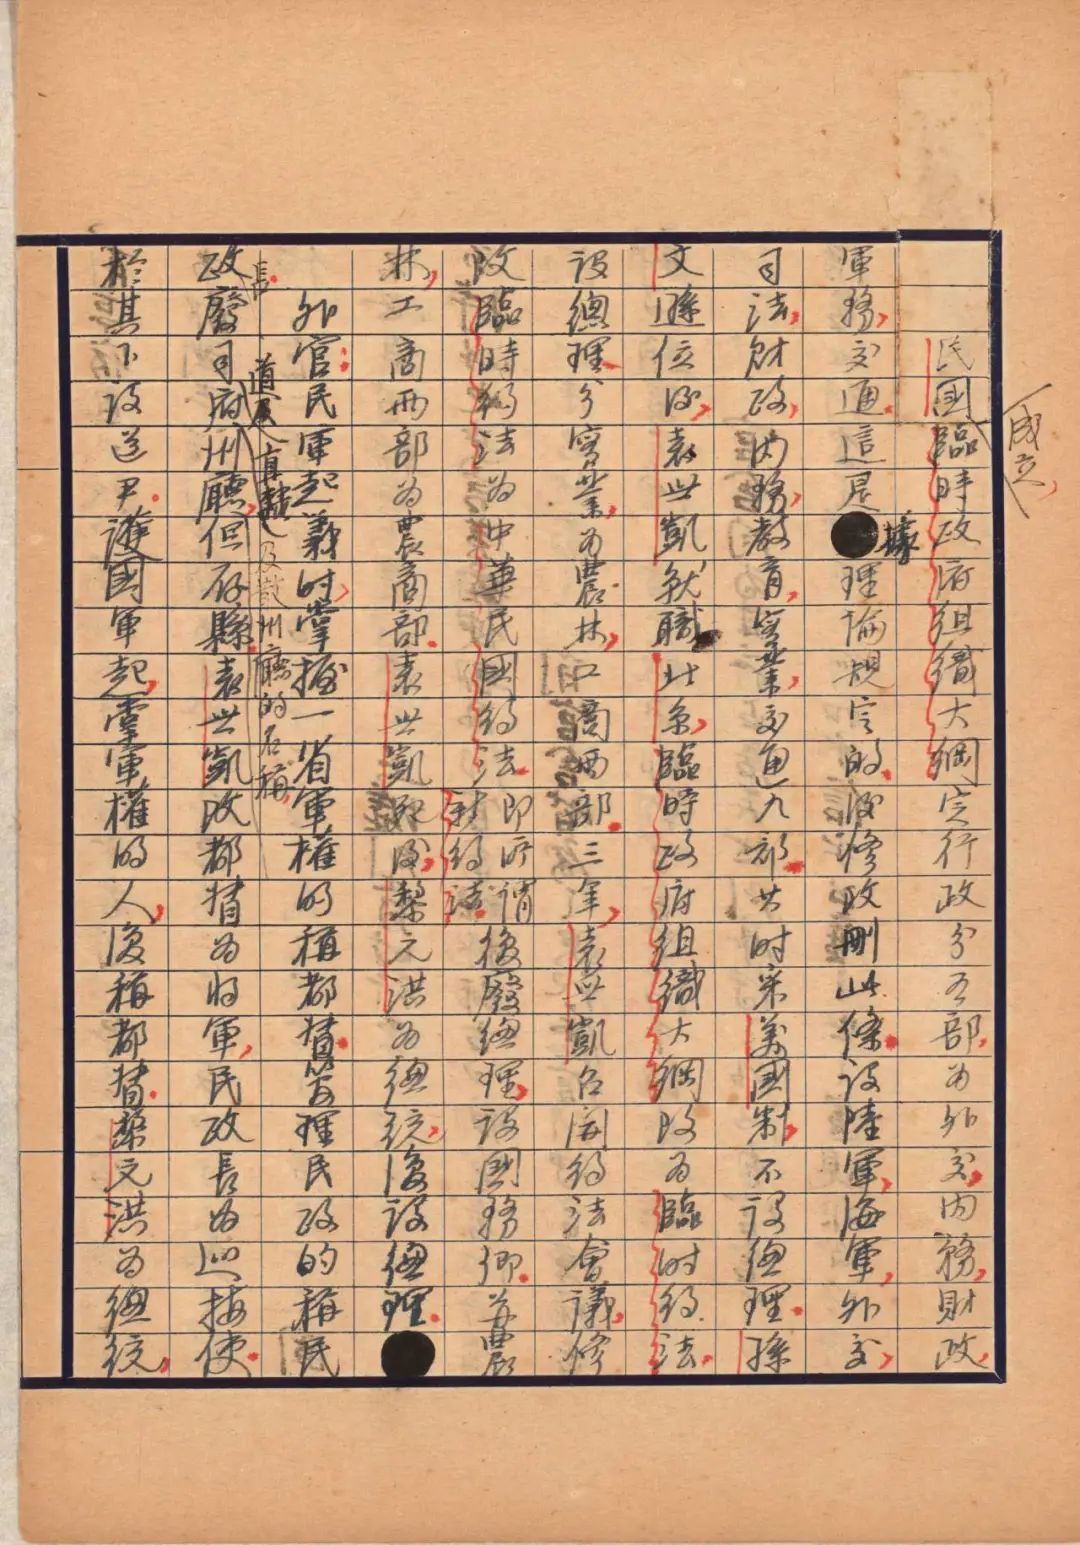 民國
成立,
臨時政府組織大綱定行政分五部,為外交,內務,財政,
軍務,交通.這是據理論規定的.後修改刪此條.設陸軍,海軍,外交,
司法,財政,內務,教育,實業,交通九部.其時采美國制,不設總理.孫
文遜位後,袁世凱就職北京,臨時政府組織大綱改為臨時約法.
設總理.分實業為農林,工商兩部.三年,袁世凱召開約法會議,修
改臨時約法為中華民國約法.即所謂新約法.後廢總理,設國務卿.並農
林,工商兩部為農商部.袁世凱死後,黎元洪為總統,復設總理.
外官:民軍起義時,掌握一省軍權的稱都督.管理民政的稱民
政長.廢司道及府直隸州廳,及散州廳的名稱,但存縣.袁世凱改都督為將軍,民政長為巡按使.
於其下設道尹.護國軍起,掌軍權的人,復稱都督.黎元洪為總統,